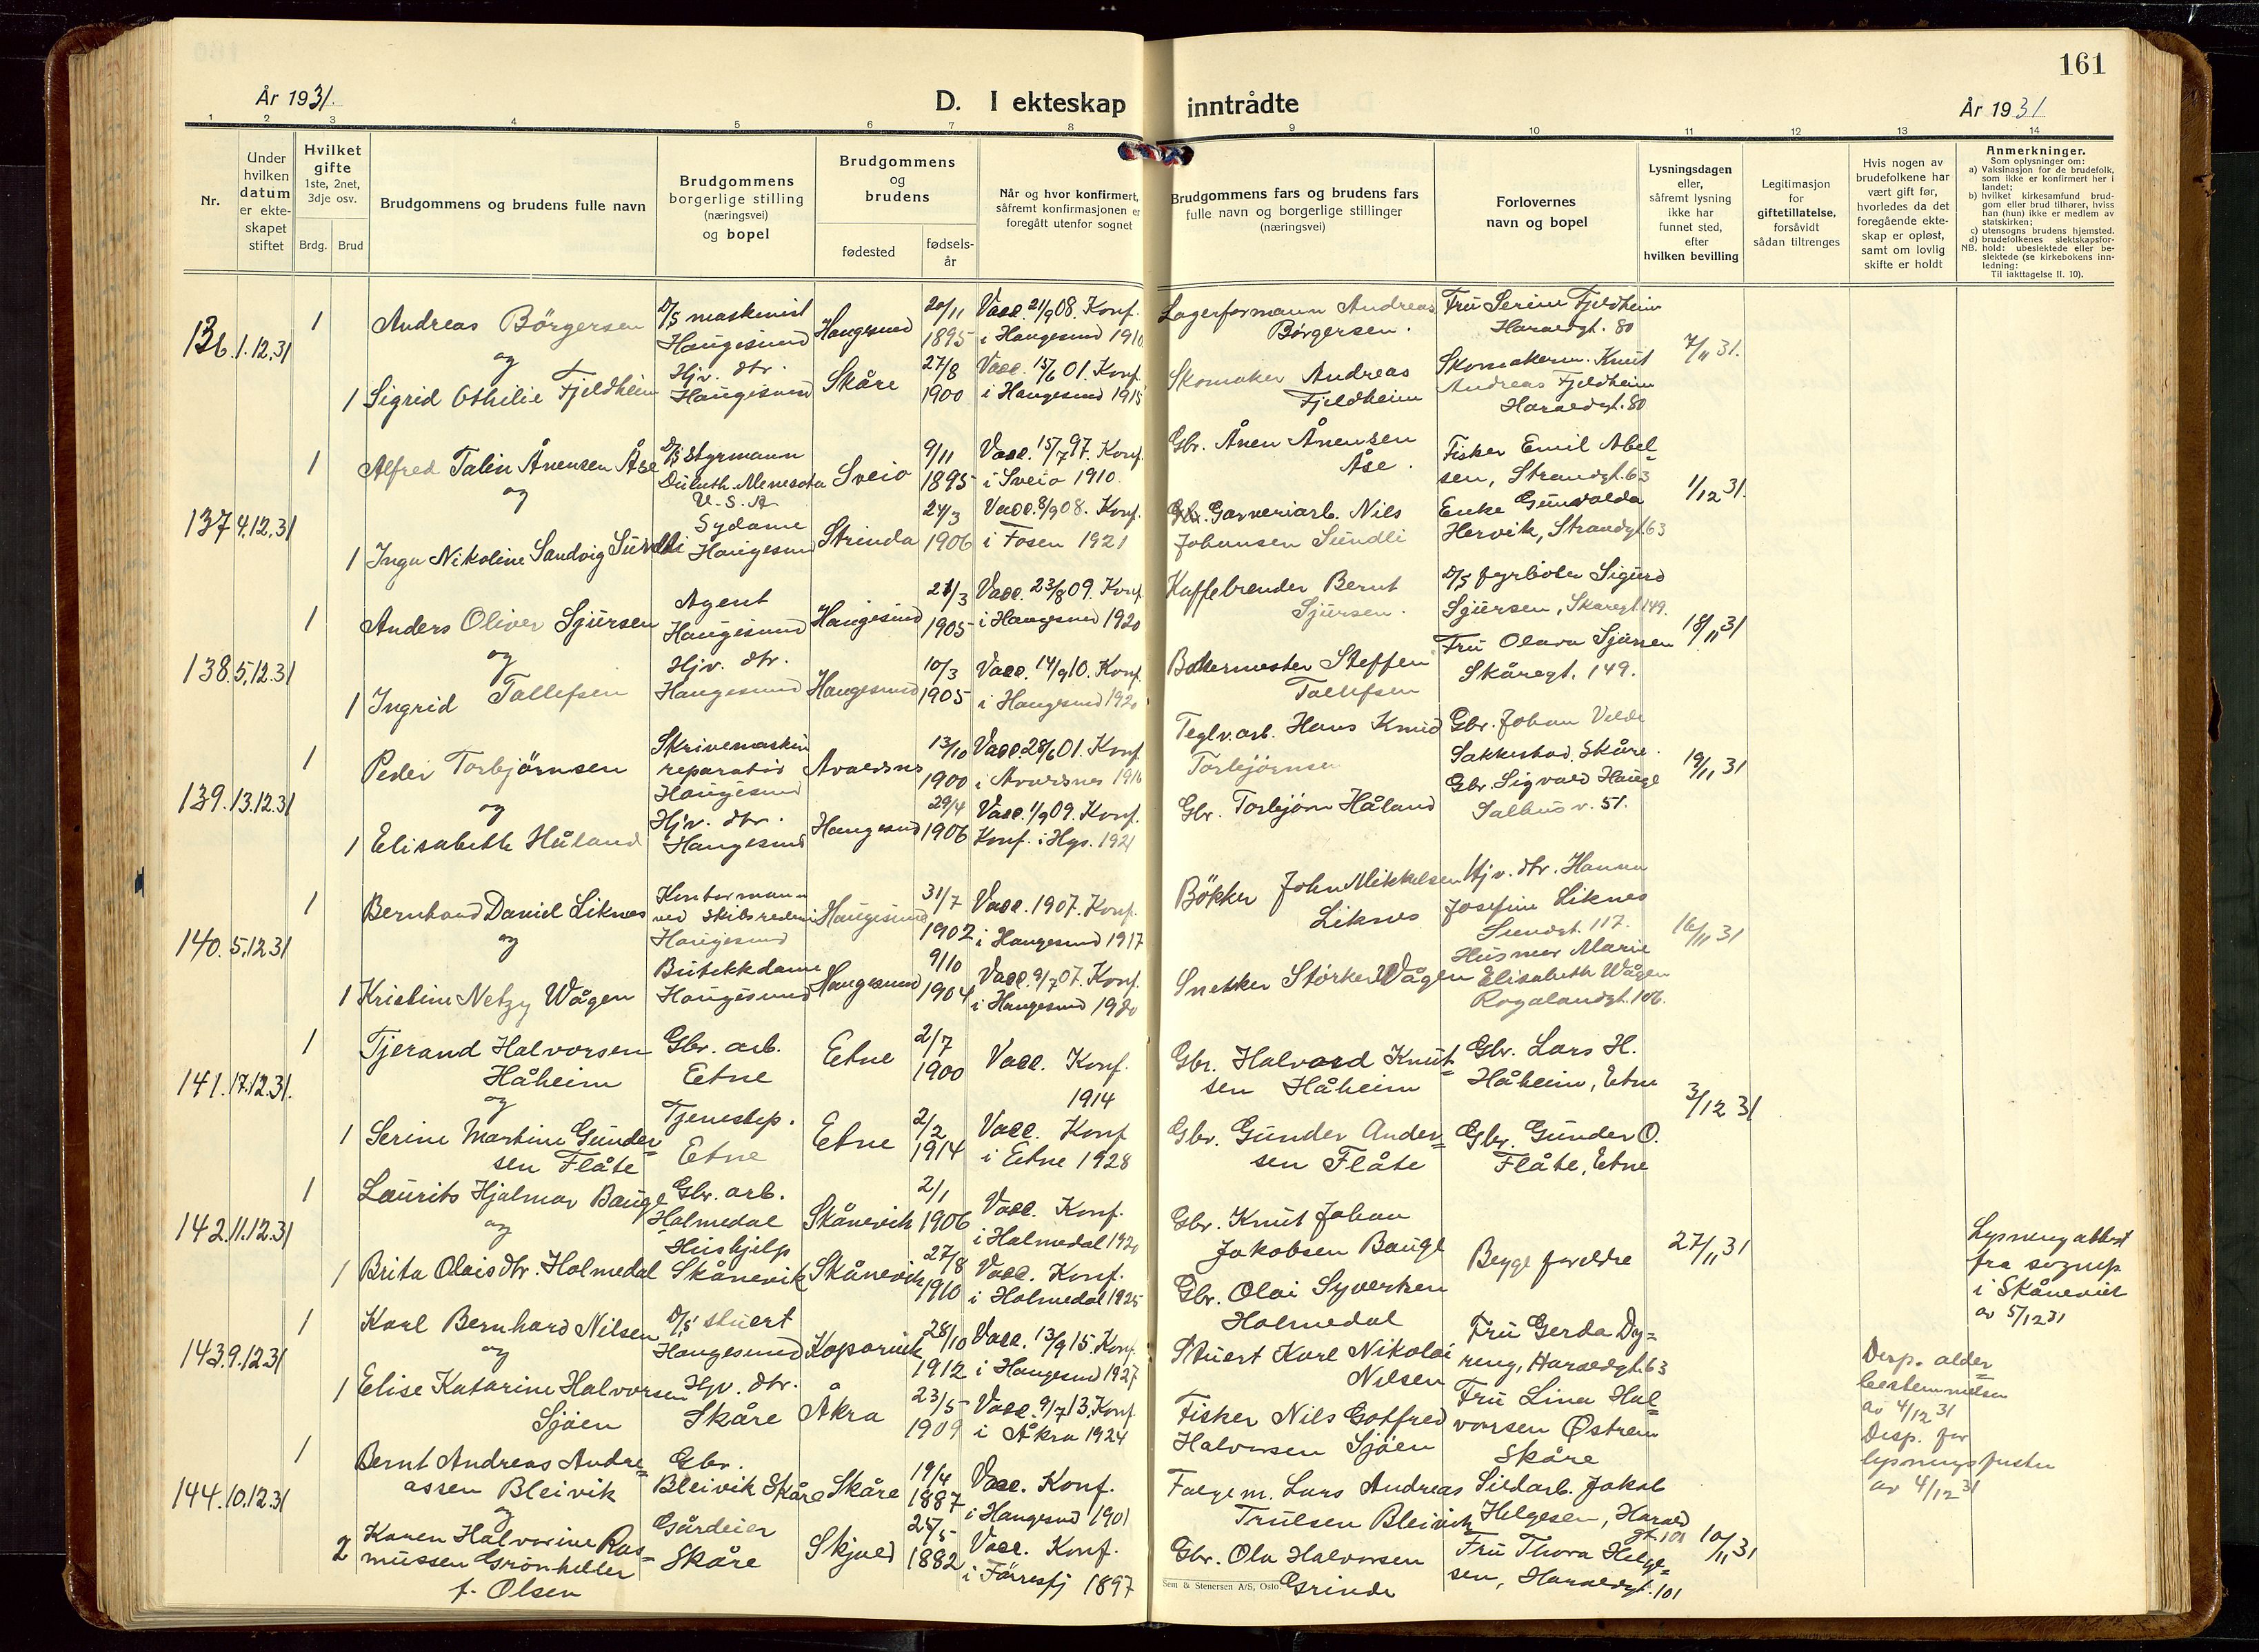 161
År 1931.
D. I ekteskap inntrådte
År 1931
1 2 3 4 5 6 7 8 9 10 11 12 13 14
Nr.
Under hvilken datum er ekteskapet stiftet
Hvilket gifte 1ste, 2net, 3dje osv.
Brdg. Brud
Brudgommens og brudens fulle navn
Brudgommens borgerlige stilling (næringsvei) og bopel
Brudgommens og brudens
fødested
fødselsår
Når og hvor konfirmert, såfremt konfirmasjonen er foregått utenfor sognet
Brudgommens fars og brudens fars fulle navn og borgerlige stillinger (næringsvei)
Forlovernes navn og bopel
Lysningsdagen eller, såfremt lysning ikke har funnet sted, efter hvilken bevilling
Legitimasjon for giftetillatelse, forsåvidt sådan tiltrenges
Hvis nogen av brudefolkene har vært gift før, hvorledes da det foregående ekteskap er opløst, samt om lovlig skifte er holdt
Anmerkninger.
Som oplysninger om:
a) Vaksinasjon for de brudefolk, som ikke er konfirmert her i landet;
b) hvilket kirkesamfund brudgom eller brud tilhører, hviss han (hun) ikke er medlem av statskirken;
c) utensogns brudens hjemsted.
d) brudefolkenes slektskapsforhold: ubeslektede eller beslektede (se kirkebokens innledning:
NB.
Til iakttagelse II. 10).
136. 1.12.31
1 Andreas Börgersen
og
1 Sigrid Othilie Fjeldheim
D/S maskinist
Haugesund
Hjv. dtr.
Haugesund
Haugesund
Skåre
20/11 1895
27/8 1900
Vacc. 21/9 08. Konf. i Haugesund 1910
Vacc. 15/6 01. Konf. i Haugesund 1915
Lagerformann Andreas Börgersen.
Skomaker Andreas Fjeldheim
Fru Serine Fjeldheim
Haraldgt. 80
Skomakerm. Knut Andreas Fjeldheim
Haraldgt. 80
7/11 31.
137 4.12.31
1 Alfred Talin Ånensen Åse
og
1 Inga Nikoline Sandvig Sundli
D/S Styrmann
Duluth. Menesota
U.S.A
Sydame
Haugesund
Sveio
Strinda
9/11 1895
24/3 1906
Vacc. 15/7 97. Konf. i Sveio 1910
Vacc. 8/9 08. Konf. i Fosen 1921
Gbr. Ånen Ånensen Åse.
Garveriarb. Nils Johansen Sundli
Fisker Emil Abelsen, Strandgt. 63
Enke Gunvalda Hervik, Strandgt. 63
1/12 31.
138. 5.12.31
1 Anders Oliver Sjursen
og
1 Ingrid Tollefsen
Agent
Haugesund
Hjv. dtr.
Haugesund
Haugesund
Haugesund
21/3 1905
10/3 1905
Vacc. 23/8 09. Konf. i Haugesund 1920
Vacc. 14/9 10. Konf. i Haugesund 1920
Kaffebrender Bernt Sjursen.
Bakermester Steffen Tollefsen
D/S fyrböter Sigurd Sjursen, Skåregt. 149.
Fru Olava Sjursen
Skåregt. 149.
18/11 31
139. 13.12.31
1 Peder Torbjörnsen
og
1 Elisabeth Håland
Skrivemaskin reparatör
Haugesund
Hjv. dtr.
Haugesund
Avaldsnes
Haugesund
13/10 1900
29/4 1906
Vacc. 28/6 01. Konf. i Avaldsnes 1916
Vacc. 1/9 09. Konf.
Konf. i Hgs. 1921
Teglv.arb. Hans Knud Torbjörnsen
Gbr. Torbjörn Håland
Gbr. Johan Velde
Sakkestad. Skåre.
Gbr. Sigvald Hauge
Salhus v. 51.
19/11 31
140. 5.12.31
1 Bernhard Daniel Liknes
og
1 Kristine Netzy Wågen
Kontormann ved skibsrederi
Haugesund
Butikkdame
Haugesund
Haugesund
Haugesund
31/7 1902
9/10 1904
Vacc. 1907. Konf. i Haugesund 1917
Vacc. 9/7 07. Konf. i Haugesund 1920
Bökker John Mikkelsen Liknes
Snekker Störker Wågen
Hjv. dtr. Hanna Josefine Liknes
Sundgt. 117.
Husmor Marie Elisabeth Wågen
Rogalandgt. 106.
16/11 31
141. 17.12.31.
1 Tjerand Halvorsen Håheim
og
1 Serine Martine Gundersen Flåte
Gbr. arb.
Etne
Tjenestep.
Etne
Etne
Etne
2/7 1900
2/2 1914
Vacc. Konf. 1914
Vacc. Konf i Etne 1928
Gbr. Halvard Knutsen Håheim
Gbr. Gunder Andersen Flåte
Gbr. Lars H. Håheim, Etne
Gbr. Gunder O. Flåte, Etne
3/12 31
142. 11.12.31
1 Laurits Hjalmar Bauge
og
1 Brita Olaisdtr. Holmedal
Gbr. arb.
Holmedal
Hushjelp
Skånevik
Skånevik
Skånevik
2/1 1906
27/8 1910
Vacc. Konf. i Holmedal 1920
Vacc. Konf. i Holmedal 1925
Gbr. Knut Johan Jakobsen Bauge
Gbr. Olai Syversen Holmedal
Begge foreldre
27/11 31
Lysningattest fra sognep i Skånevik av 5/12 31
143. 9.12.31
1 Karl Bernhard Nilsen
og
1 Elise Katarine Halvorsen Sjöen
D/S stuert
Haugesund
Hjv. dtr.
Skåre
Kopervik
Åkra
28/10 1912
23/5 1909
Vacc. 13/9 15. Konf. i Haugesund 1927
Vacc. 9/7 13. Konf. i Åkra 1924
Stuert Karl Nikolai Nilsen
Fisker Nils Gotfred Halvorsen Sjöen
Fru Gerda Dyreng, Haraldgt. 63
Fru Lina Halvorsen Østrem
Skåre
Disp. alder bestemmelsen av 4/12 31
Disp. for lysningsfristen av 4/12 31
144. 10.12.31
1 Bernt Andreas Andreassen Bleivik
og
2 Karen Halvorine Rasmussen Grönhelder
f. Olsen
Gbr.
Bleivik Skåre
Gårdeier
Skåre
Skåre
Skjold
19/4 1887
25/5 1882
Vacc. Konf. i Haugesund 1901
Vacc. Konf. i Förresfj 1897
Lars Andreas Trulsen Bleivik
Gbr. Ola Halvorsen Grinde
Sildarb. Jakob Helgesen, Haraldgt. 101
Fru Thora Helgesen, Haraldgt. 101
10/11 31
Sem & Stenersen A/S, Oslo.